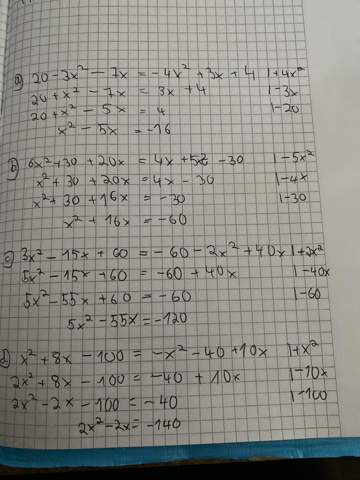 a) 20 - 3x² - 7x = -4x² + 3x + 4 |+4x²
20 + x² - 7x = 3x + 4 |-3x
20 + x² - 5x = 4 |-20
x² - 5x = -16
b) 6x² + 30 + 20x = 4x + 5x² - 30 |-5x²
x² + 30 + 20x = 4x - 30 |-4x
x² + 30 + 16x = -30 |-30
x² + 16x = -60
c) 3x² - 15x + 60 = -60 - 2x² + 40x |+2x²
5x² - 15x + 60 = -60 + 40x |-40x
5x² - 55x + 60 = -60 |-60
5x² - 55x = -120
d) x² + 8x - 100 = -x² - 40 + 10x |+x²
2x² + 8x - 100 = -40 + 10x |-10x
2x² - 2x - 100 = -40 |-100
2x² - 2x = -140